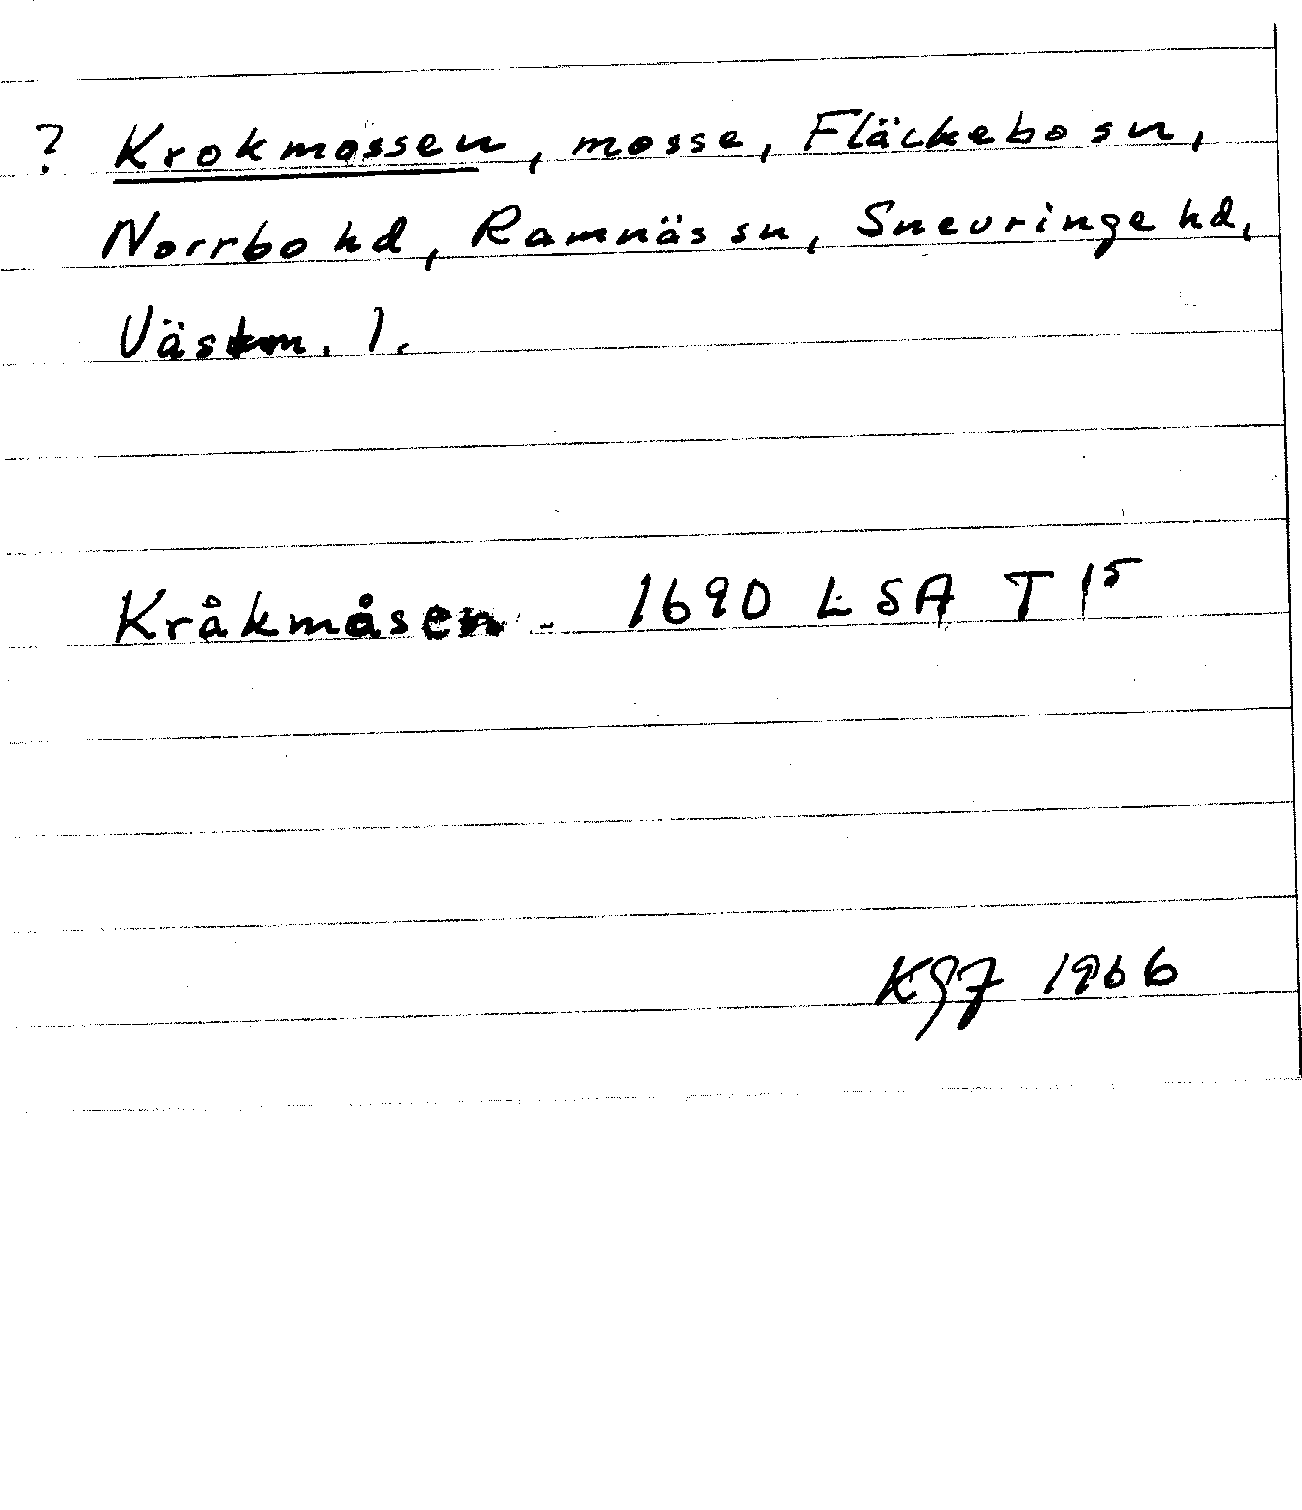 ? Krokmossen, mosse, Fläckebo sn,
Norrbo hd, Ramnäs sn, Snevringe hd,
Västm. l.
Kråkmåsen - 1690 LSA T 15
KGJ 1966